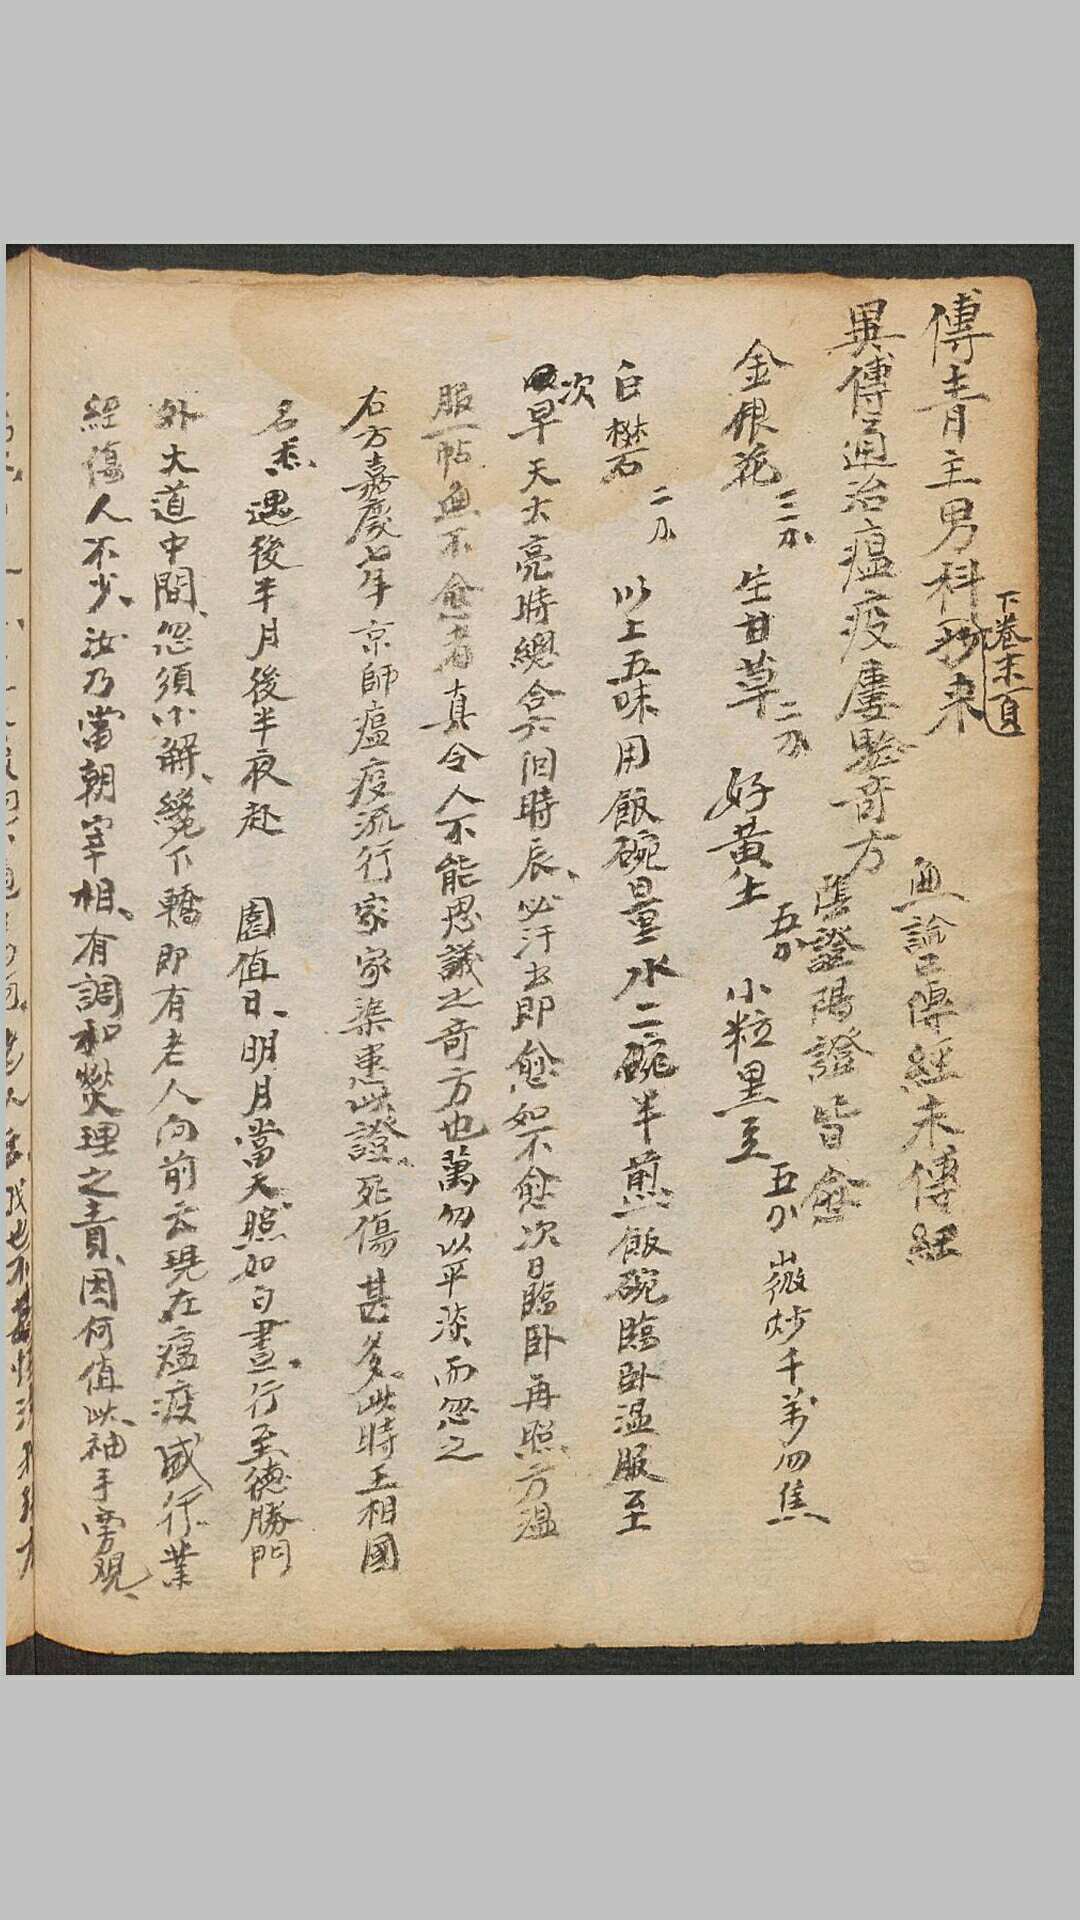 傅青主男科抄來
下卷末頁
異傳通治瘟疫屢驗奇方
無論已傳經未傳經
陰證陽證皆愈
金銀花 三 生甘草 二 好黃土 五 小粒黑豆 五 微炒千萬勿焦
白礬 二 以上五味用飯碗量水二碗半煎飯碗臨卧温服至
次早天大亮時總合六個時辰、必汗出即愈如不愈次日臨卧再照方温
服一帖無不愈者真令人不能思議之奇方也萬勿以平淡而忽之
右方嘉慶七年京師瘟疫流行家家染患此證、死傷甚多、此時王相國
名杰、遇後半月後半夜赴 園值日、明月當天照如白晝、行至德勝門
外大道中間、忽須小解、纔下轎即有老人向前云現在瘟疫盛行業
經傷人不少、汝乃當朝宰相、有調和爕理之責、因何值此、袖手旁觀、